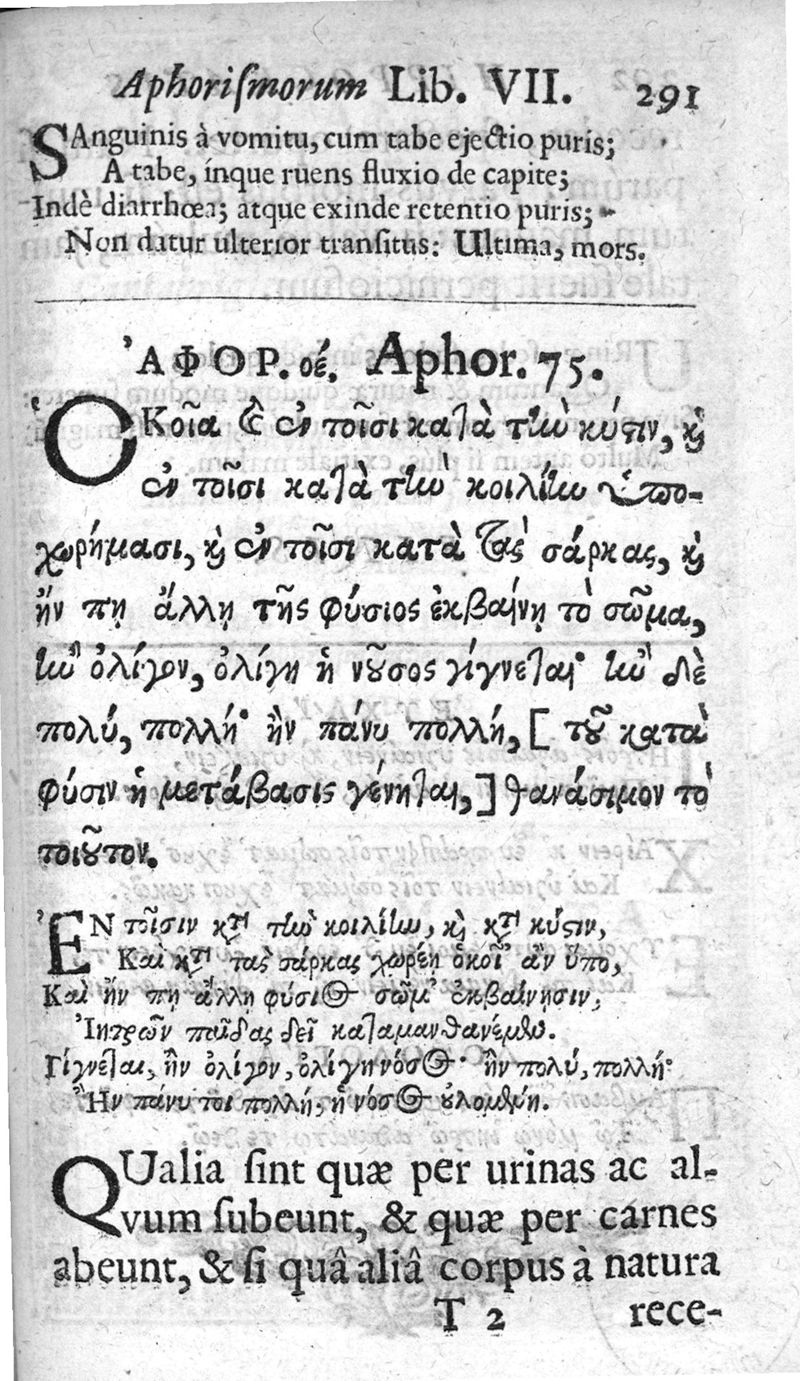 Aphoriſmorum Lib. VII. 291
SAnguinis à vomitu, cum tabe ejectio puris;
A tabe, inque ruens fluxio de capite;
Indè diarrhœa; atque exinde retentio puris;
Non datur ulterior tranſitus: Ultima, mors.
ἈΦΟΡ. οέ. Aphor. 75.
ὉΚοῖα καὶ ἐν τοῖσι κατὰ τὴν κύστιν, καὶ
ἐν τοῖσι κατὰ τὴν κοιλίην ὑπο-
χωρήμασι, καὶ ἐν τοῖσι κατὰ τὰς σάρκας, καὶ
ἤν πῃ ἄλλῃ τῆς φύσιος ἐκβαίνῃ τὸ σῶμα,
ἢν ὀλίγον, ὀλίγη ἡ νοῦσος γίγνεται· ἢν δὲ
πολύ, πολλή· ἢν πάνυ πολλή, [ τοῦ κατὰ
φύσιν ἡ μετάβασις γένηται,] θανάσιμον τὸ
τοιοῦτον.
ἘΝ τοῖσιν κατὰ τὴν κοιλίην, καὶ κατὰ κύστιν,
Καὶ κατὰ τὰς σάρκας χωρέῃ ὁκοῖ' ἂν ὕπο,
Καὶ ἤν πη ἄλλη φύσιος σῶμ' ἐκβαίνησιν,
Ἰητρῶν παῖδας δεῖ καταμανθανέμεν.
Γίγνεται, ἢν ὀλίγον, ὀλίγη νόσος· ἢν πολύ, πολλή·
Ἢν πάνυ τοι πολλή, ἡ νόσος οὐλομένη.
QUalia ſint quæ per urinas ac al-
vum ſubeunt, & quæ per carnes
abeunt, & ſi quâ aliâ corpus à natura
T 2 rece-